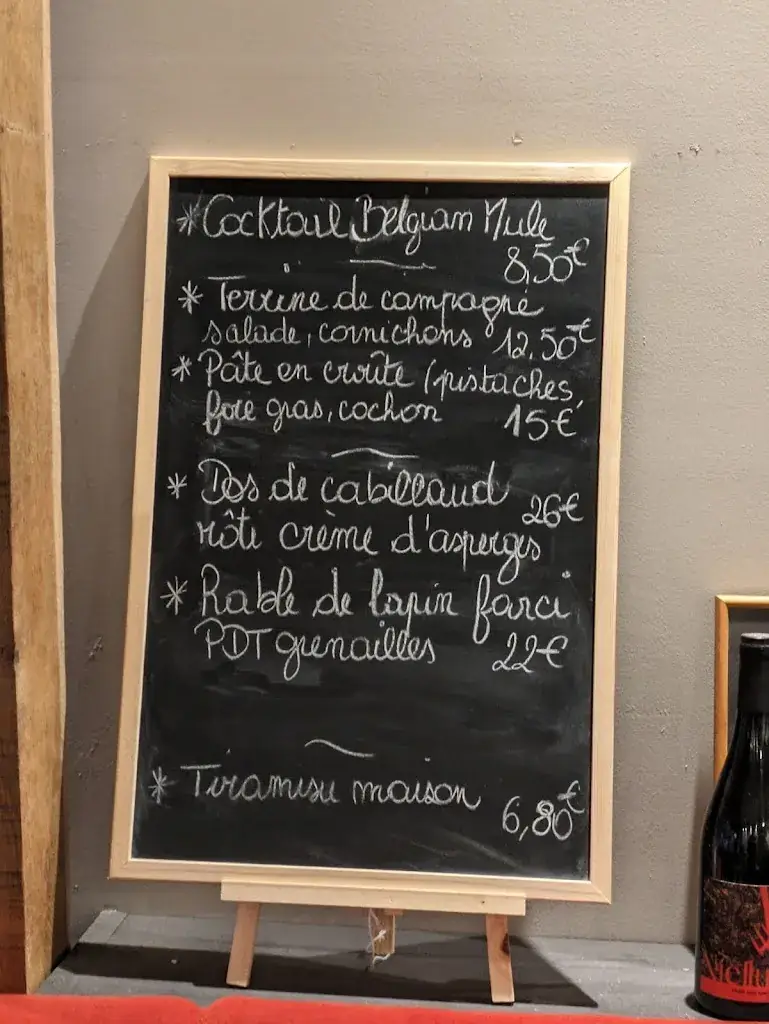 * Cocktail Belgian Mule
8,50€
* Terrine de campagne
salade, cornichons 12,50€
* Pâte en croûte (pistaches,
foie gras, cochon 15€
* Dos de cabillaud 26€
rôti crème d'asperges
* Rable de lapin farci
PDT grenailles 22€
* Tiramisu maison
6,80€